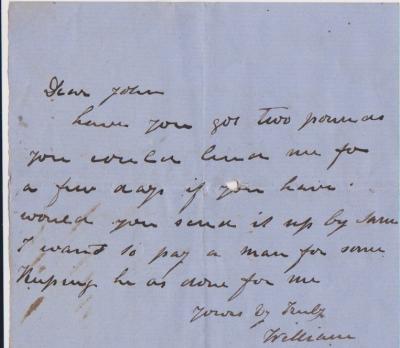 Dear John
have you got two pounds
you could lend me for
a few days if you have.
would you send it up by same
I want to pay a man for some
he as done for me
yours Truly
William